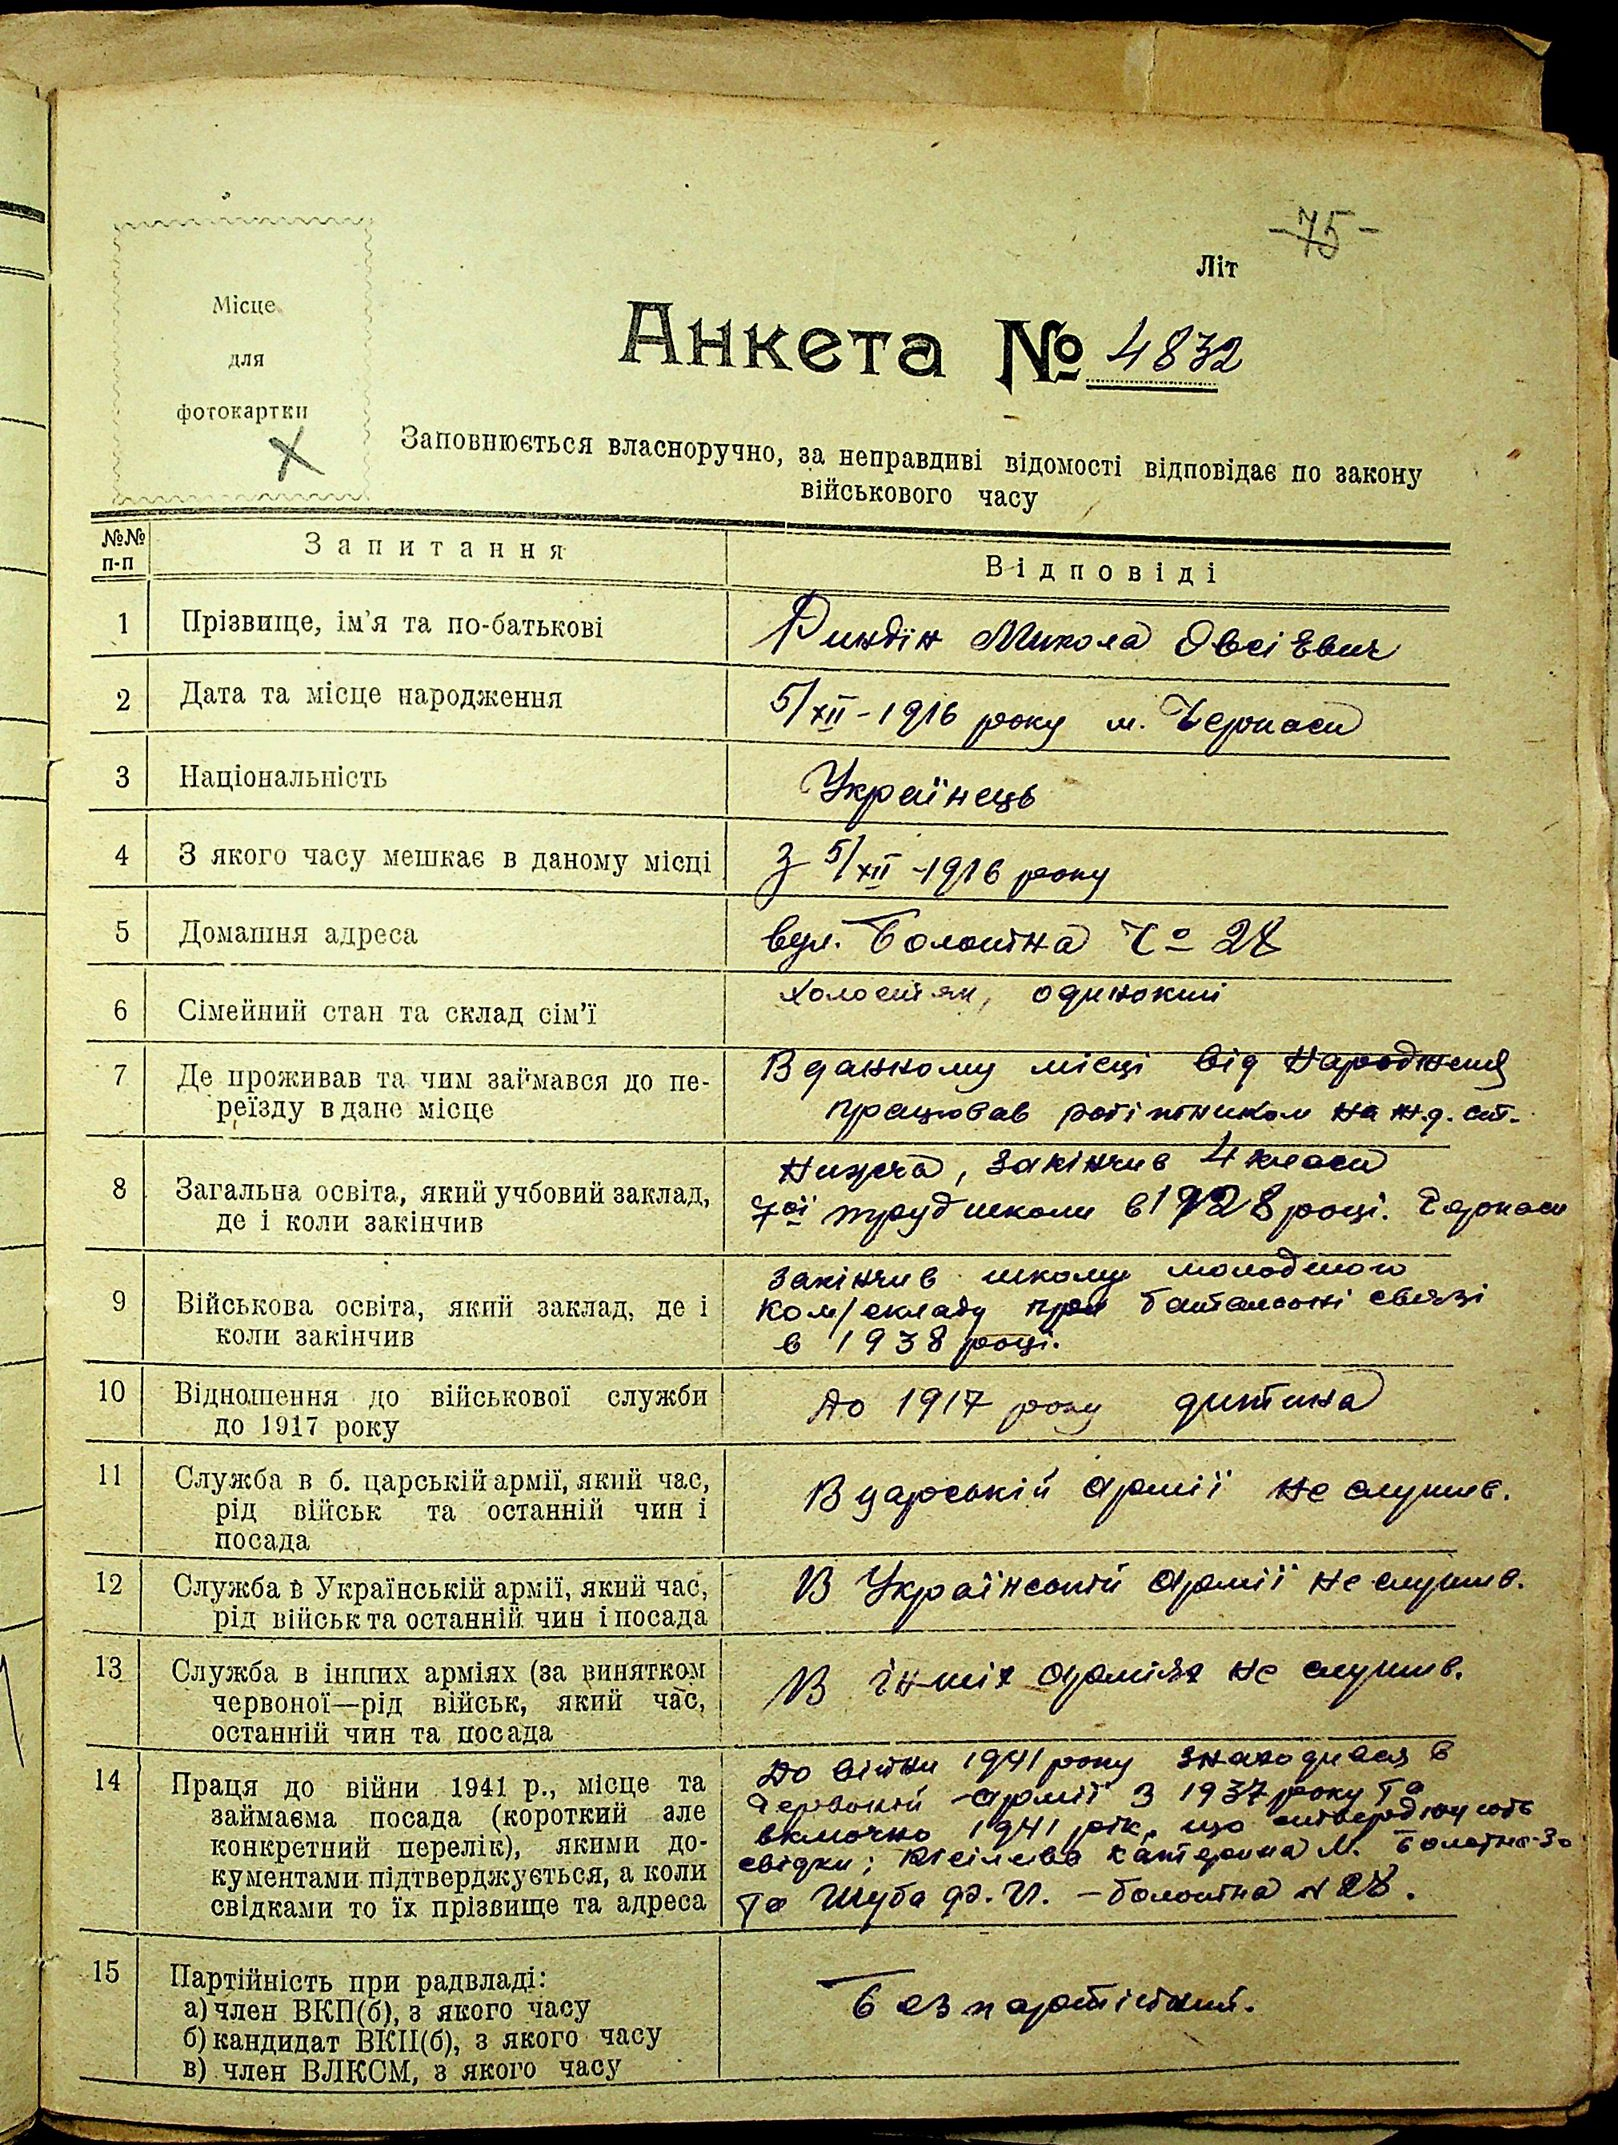 -75-
Літ
Місце
для
фотокартки
Анкета № 4832
Заповнюється власноручно, за неправдиві відомості відповідає по закону
військового часу
№№ п-п
Запитання
Відповіді
1
Прізвище, ім'я та по-батькові
Риндін Микола Овсієвич
2
Дата та місце народження
5/XII-1916 року м. Черкаси
3
Національність
Українець
4
З якого часу мешкає в даному місці
З 5/XII-1916 року
5
Домашня адреса
вул. Болотна Чо 28
6
Сімейний стан та склад сім'ї
Холостяк, одинокий
7
Де проживав та чим займався до пе-
реїзду в дане місце
В данному місці від народженя
працював робітником на ж.д. ст.
8
Загальна освіта, який учбовий заклад,
де і коли закінчив
Нижча, закінчив 4 класи
7ої труд школи в 1928 році. Черкаси
9
Військова освіта, який заклад, де і
коли закінчив
Закінчив школу молодшого
ком/складу при батальоні связі
в 1938 році.
10
Відношення до військової служби
до 1917 року
До 1917 року дитина
11
Служба в б. царській армії, який час,
рід військ та останній чин і
посада
В царській армії не служив.
12
Служба в Українській армії, який час,
рід військ та останній чин і посада
В Українській армії не служив.
13
Служба в інших арміях (за винятком
червоної—рід військ, який час,
останній чин та посада
В інших арміях не служив.
14
Праця до війни 1941 р., місце та
займаєма посада (короткий але
конкретний перелік), якими до-
кументами підтверджується, а коли
свідками то їх прізвище та адреса
До війни 1941 року знаходився в
Червоній Армії з 1937 року та
включно 1941 рік, що стверджують
свідки; Катерина М. Болотна-30
та Шуба Ф. И. - Болотна № 28.
15
Партійність при радвладі:
а) член ВКП(б), з якого часу
б) кандидат ВКП(б), з якого часу
в) член ВЛКСМ, з якого часу
Безпартійний.